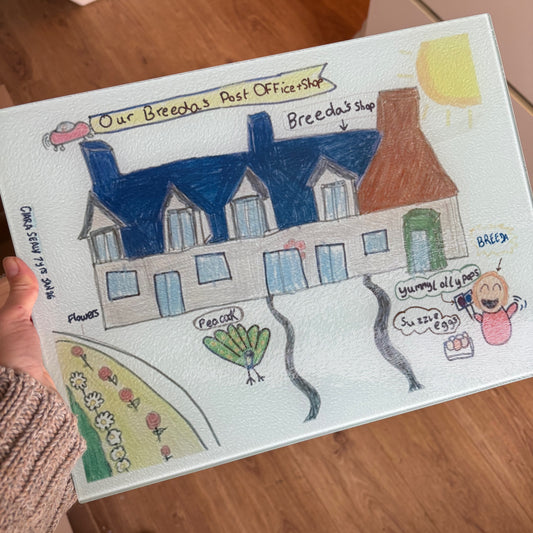 Our Breeda's Post Office+Shop
Breeda's Shop
BREEDA
yummy Lollypops
Suzzie
eggs
Peacock
Flowers